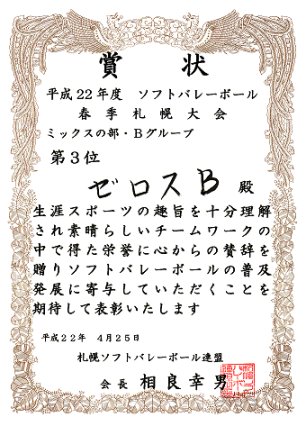 賞状
平成22年度 ソフトバレーボール
春季札幌大会
ミックスの部・Bグループ
第3位
ゼロスB 殿
生涯スポーツの趣旨を十分理解
され素晴らしいチームワークの
中で得た栄誉に心からの賛辞を
贈りソフトバレーボールの普及
発展に寄与していただくことを
期待して表彰いたします
平成22年 4月25日
札幌ソフトバレーボール連盟
会長 相良幸男